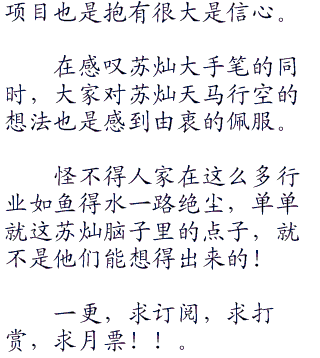 项目也是抱有很大是信心。
在感叹苏灿大手笔的同
时，大家对苏灿天马行空的
想法也是感到由衷的佩服。
怪不得人家在这么多行
业如鱼得水一路绝尘，单单
就这苏灿脑子里的点子，就
不是他们能想得出来的！
一更，求订阅，求打
赏，求月票！！。